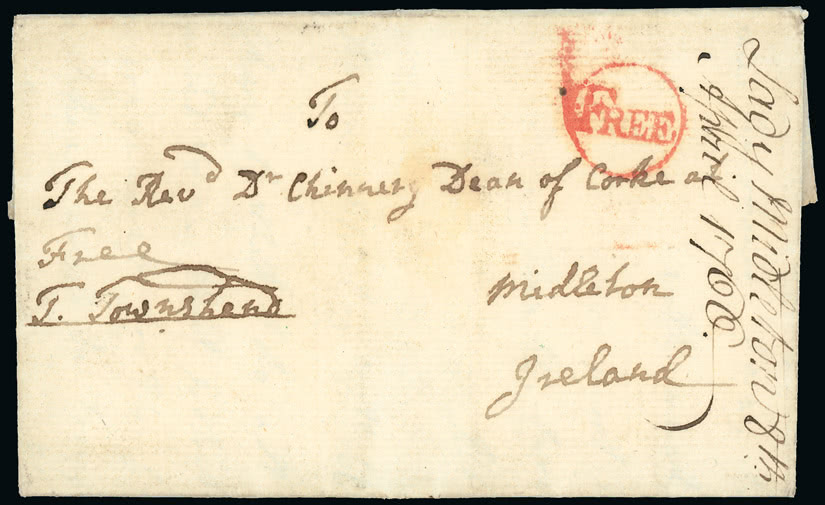 To
FREE
The Revd Dr Chinnery Dean of Corke at
Free
Midleton
T. Townshend
Ireland
Lady Midleton 8th
April 1766